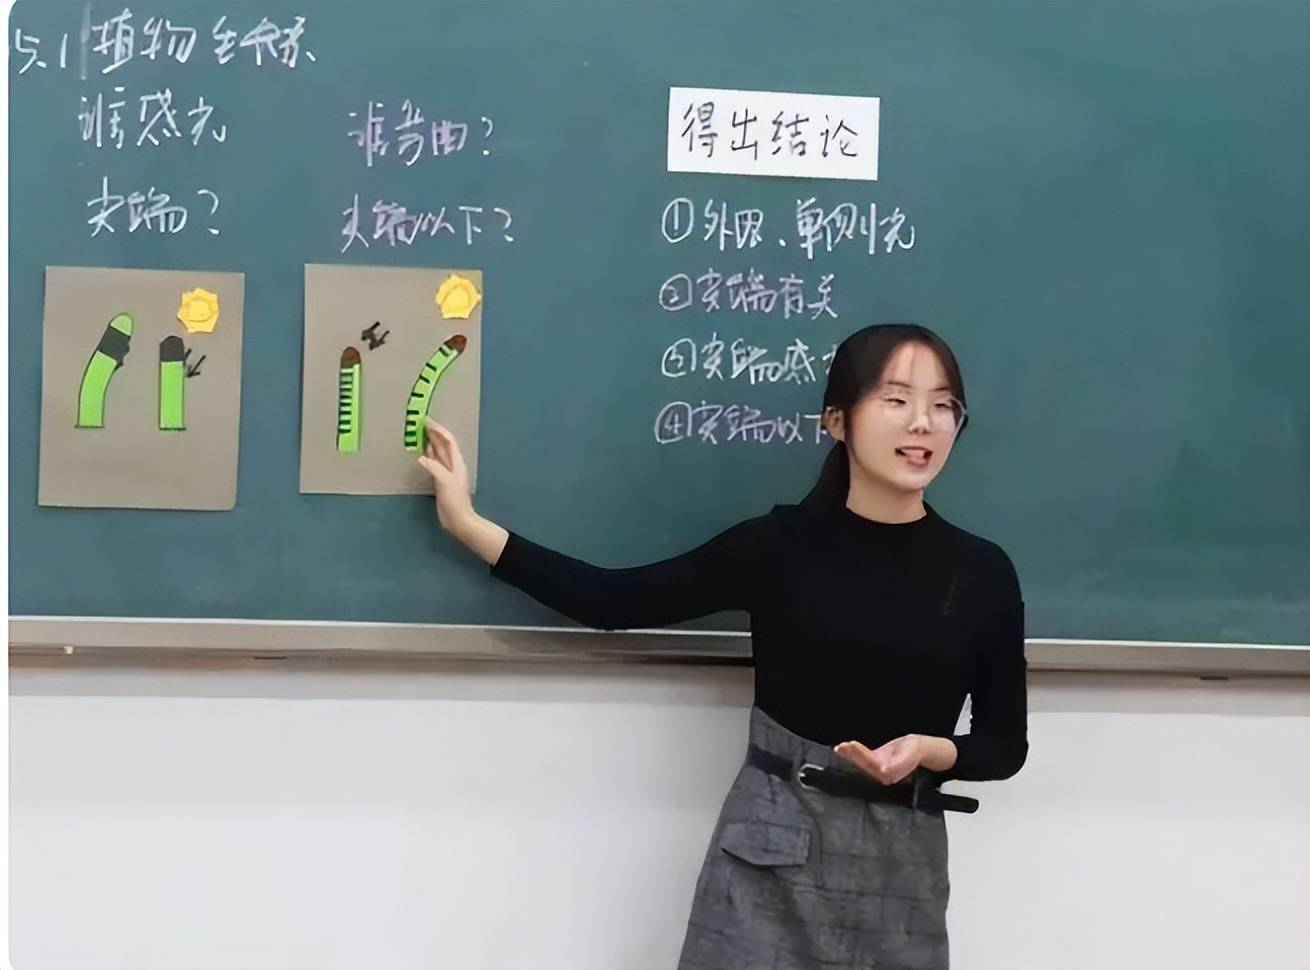 5.1 植物生长素
谁感光
尖端？
谁弯曲？
尖端以下？
得出结论
①外因、单侧光
②尖端有关
③尖端感
④尖端以下